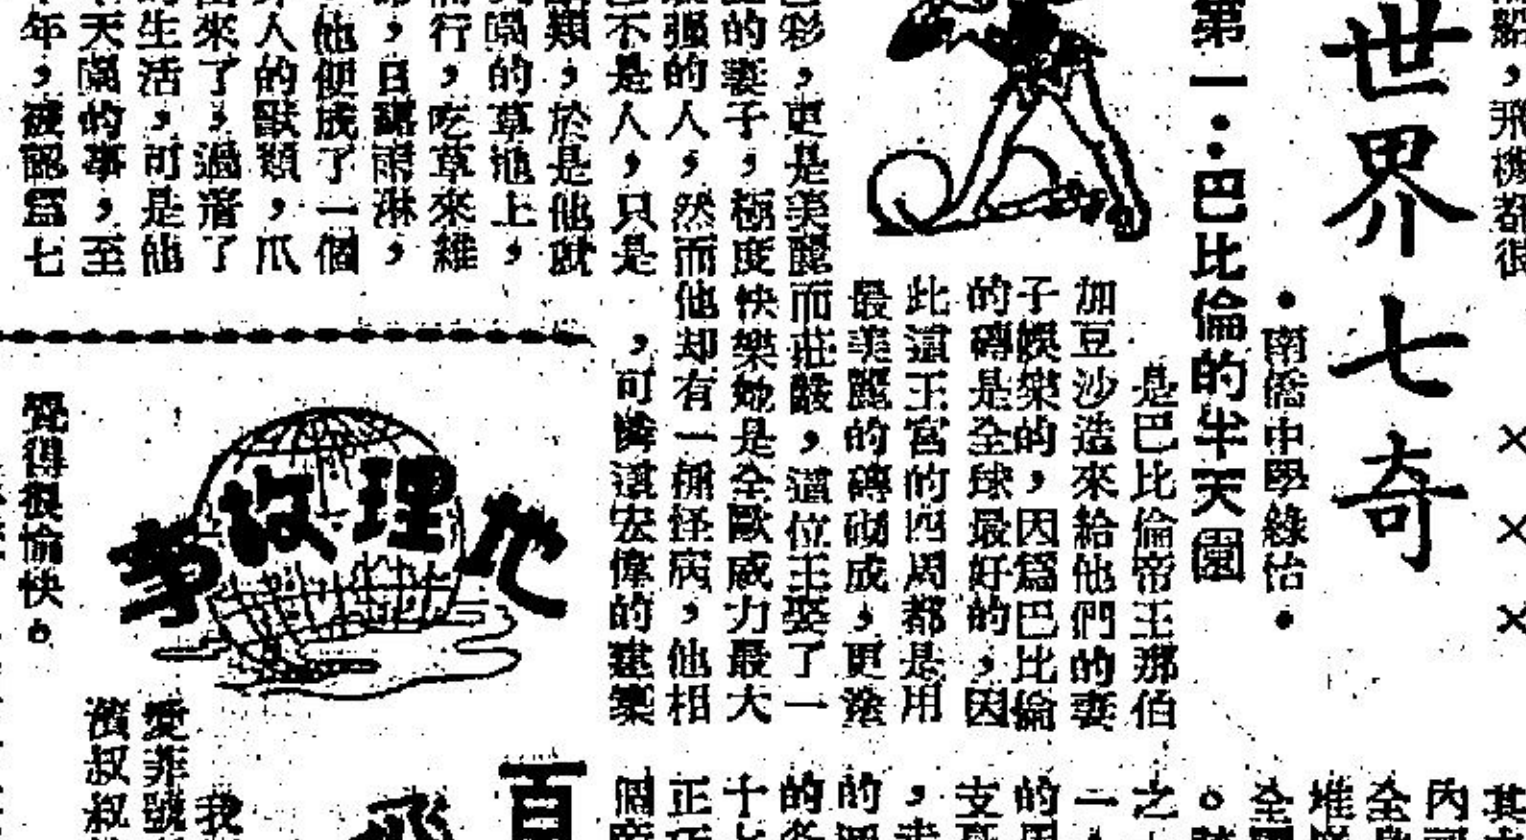 船，飛機都很
×××
世界七奇
•南僑中學綠怡•
第一：巴比倫的半天園
是巴比倫帝王那伯
加豆沙造來給他們的妻
子娛樂的，因爲巴比倫
的磚是全球最好的，因
此這王宮的四周都是用
最美麗的磚砌成，更塗
彩，更是美麗而莊嚴，這位王娶了一
的妻子，極度快樂她是全歐威力最大
强的人，然而他却有一種怪病，他相
不是人，只是
，可憐這宏偉的建築
類，於是他就
的草地上，
行，吃草來維
，日曬雨淋，
他便成了一個
人的獸類，爪
來了，過著了
生活，可是他
天 的事，至
年，被認爲七
地理故事
覺得很愉快。
其
內
全
堆
全
。
之
一
的
支
，
的
的
十
正
個
百
我
愛菲號
濱叔叔